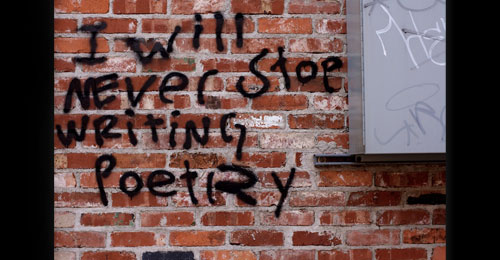 I will
NEVER STOP
WRITING
Poetry